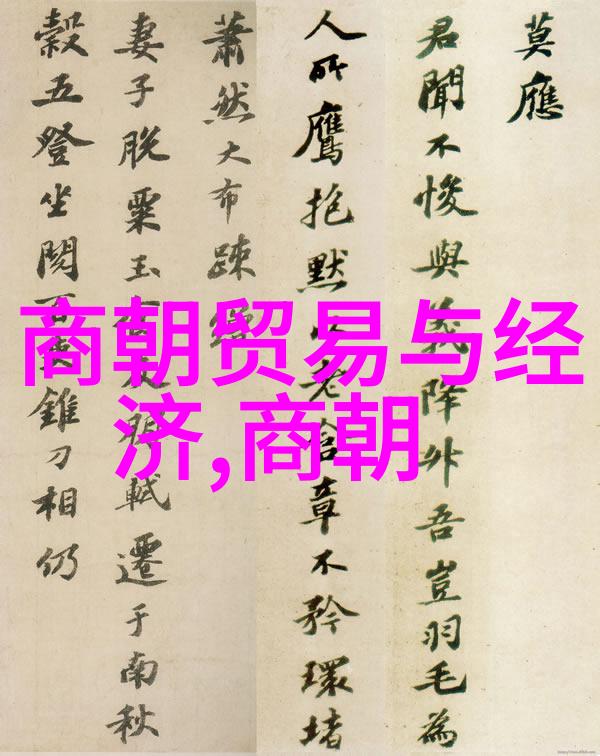 莫應
君聞不悛與義降外吾豈羽毛為
人所鷹抱默以老含章不矜環堵
蕭然大布疎
妻子脫粟玉朋軾遷于南秋
穀五登坐閱百錐刀相仍
商朝贸易与经
济,商朝